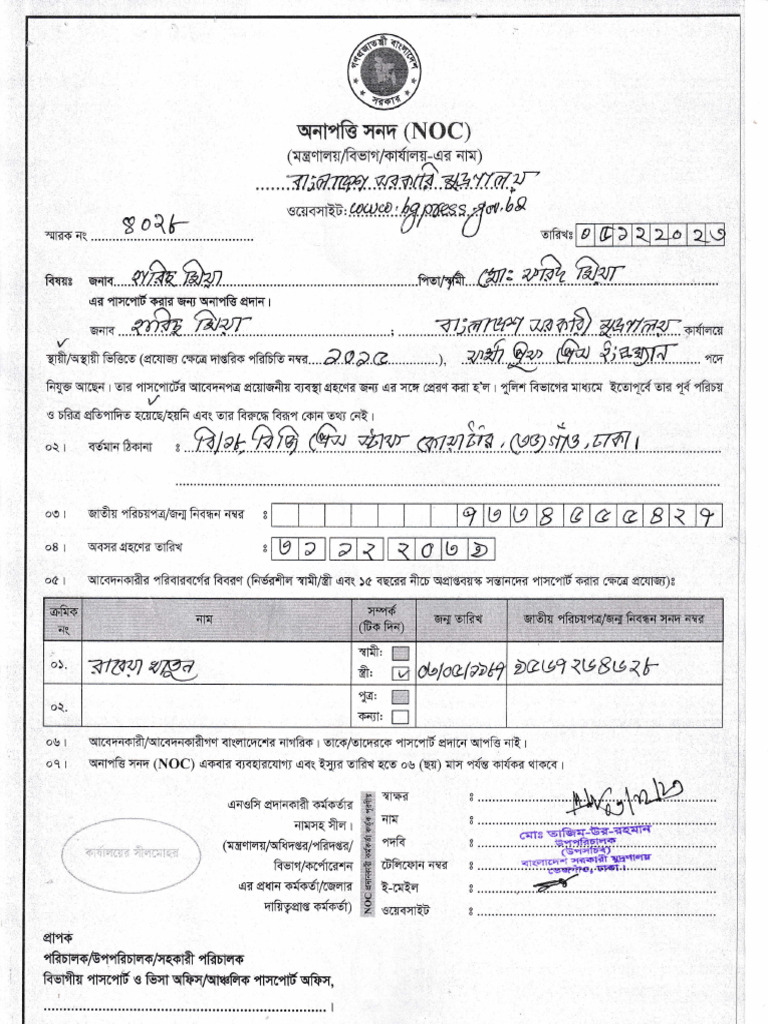 গণপ্রজাতন্ত্রী বাংলাদেশ সরকার
অনাপত্তি সনদ (NOC)
(মন্ত্রণালয়/বিভাগ/কার্যালয়-এর নাম)
বাংলাদেশ সরকারি মুদ্রণালয়
ওয়েবসাইট: www.bgpress.gov.bd
স্মারক নং ৪০২৮ তারিখঃ ০৫১২২০২৩
বিষয়ঃ জনাব হারিছ মিয়া পিতা/স্বামী মোঃ ফরিদ মিয়া
এর পাসপোর্ট করার জন্য অনাপত্তি প্রদান।
জনাব হারিছ মিয়া ; বাংলাদেশ সরকারী মুদ্রণালয় কার্যালয়ে
স্থায়ী/অস্থায়ী ভিত্তিতে (প্রযোজ্য ক্ষেত্রে দাপ্তরিক পরিচিতি নম্বর ২০২৫), প্রেস পদে
নিযুক্ত আছেন। তার পাসপোর্টের আবেদনপত্র প্রয়োজনীয় ব্যবস্থা গ্রহণের জন্য এর সঙ্গে প্রেরণ করা হ'ল। পুলিশ বিভাগের মাধ্যমে ইতোপূর্বে তার পূর্ব পরিচয়
ও চরিত্র প্রতিপাদিত হয়েছে/হয়নি এবং তার বিরুদ্ধে বিরূপ কোন তথ্য নেই।
০২। বর্তমান ঠিকানা : বি/১৮, বিজি প্রেস স্টাফ কোয়ার্টার, তেজগাঁও, ঢাকা।
০৩। জাতীয় পরিচয়পত্র/জন্ম নিবন্ধন নম্বর ঃ ৭৩৩৪৫৫৫৪২৭
০৪। অবসর গ্রহণের তারিখ ঃ ৩১১২২০৩
০৫। আবেদনকারীর পরিবারবর্গের বিবরণ (নির্ভরশীল স্বামী/স্ত্রী এবং ১৫ বছরের নীচে অপ্রাপ্তবয়স্ক সন্তানদের পাসপোর্ট করার ক্ষেত্রে প্রযোজ্য)ঃ
ক্রমিক নং নাম সম্পর্ক (টিক দিন) জন্ম তারিখ জাতীয় পরিচয়পত্র/জন্ম নিবন্ধন সনদ নম্বর
০১. রাবেয়া খাতুন স্বামী: স্ত্রী: ০৩/০৫/১৯৮৭ ১৫৬৭২৬৪৬২৮
০২. পুত্র: কন্যা:
০৬। আবেদনকারী/আবেদনকারীগণ বাংলাদেশের নাগরিক। তাকে/তাদেরকে পাসপোর্ট প্রদানে আপত্তি নাই।
০৭। অনাপত্তি সনদ (NOC) একবার ব্যবহারযোগ্য এবং ইস্যুর তারিখ হতে ০৬ (ছয়) মাস পর্যন্ত কার্যকর থাকবে।
কার্যালয়ের সীলমোহর
এনওসি প্রদানকারী কর্মকর্তার
নামসহ সীল।
(মন্ত্রণালয়/অধিদপ্তর/পরিদপ্তর/
বিভাগ/কর্পোরেশন
এর প্রধান কর্মকর্তা/জেলার
দায়িত্বপ্রাপ্ত কর্মকর্তা)
NOC প্রদানকারী কর্মকর্তা কর্তৃক পূরণীয়
স্বাক্ষর :
নাম : মোঃ তাজিম-উর-রহমান
পদবি : উপপরিচালক
(উপসচিব)
টেলিফোন নম্বর : বাংলাদেশ সরকারী মুদ্রণালয়
তেজগাঁও, ঢাকা।
ই-মেইল :
ওয়েবসাইট :
প্রাপক
পরিচালক/উপপরিচালক/সহকারী পরিচালক
বিভাগীয় পাসপোর্ট ও ভিসা অফিস/আঞ্চলিক পাসপোর্ট অফিস,